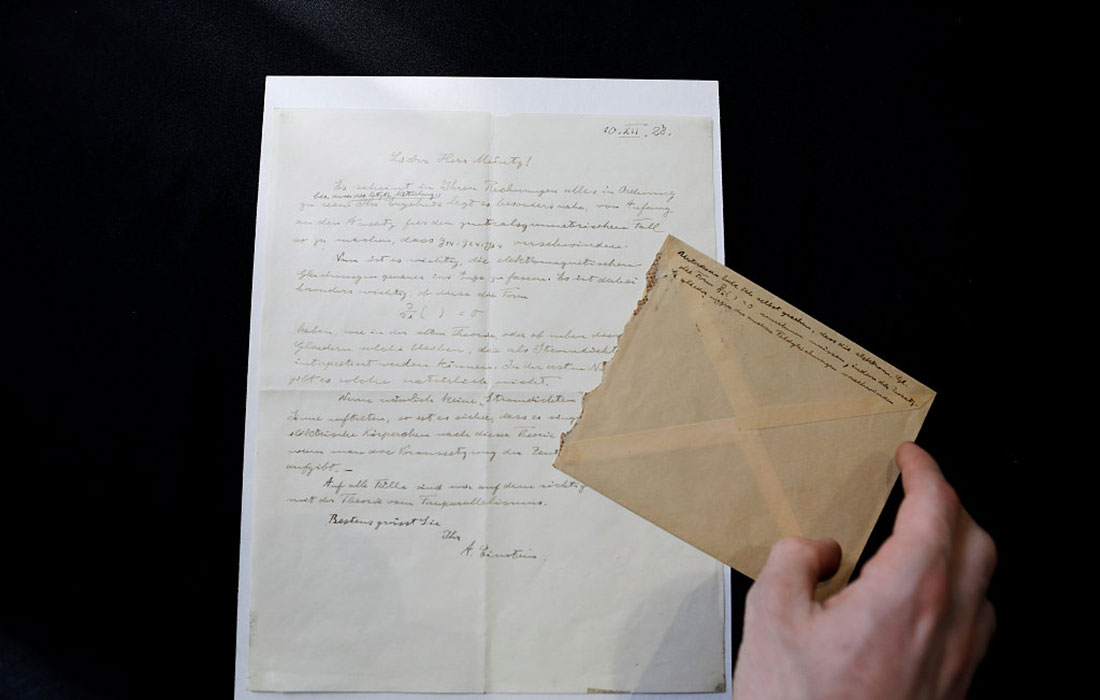 10. XII. 28.
Lieber Herr Müntz!
Es scheint in Ihren Rechnungen alles in Ordnung
bes. in der letzten
zu sein. Ihr Ergebnis legt es besonders nahe, von Anfang
an den Ansatz für den zentralsymmetrischen Fall
so zu machen, dass verschwinden.
Nun ist es wichtig, die elektromagnetischen
Gleichungen genauer ins Auge zu fassen. Es ist dabei
besonders wichtig, ob diese die Form
( ) = 0
haben, wie in der alten Theorie oder ob neben diesen
Gliedern solche bleiben, die als Stromdicht
interpretiert werden können. In der ersten N
gibt es solche natürlich nicht.
Wenn nämlich keine „Stromdichten"
Sinne auftreten, so ist es sicher, dass es
elektrische Körperchen nach dieser Theorie
wenn man die Voraussetzung der Zent
aufgibt. —
Auf alle Fälle sind wir auf dem richtig
mit der Theorie vom Fernparallelismus.
Bestens grüsst Sie
Ihr
A. Einstein.
habe ich selbst gesehen, dass die elektrom. Gl.
die Form ( ) = 0 annehmen müssen, indem die Zusatz-
glieder wegen der anderen Feldgleichungen verschwinden